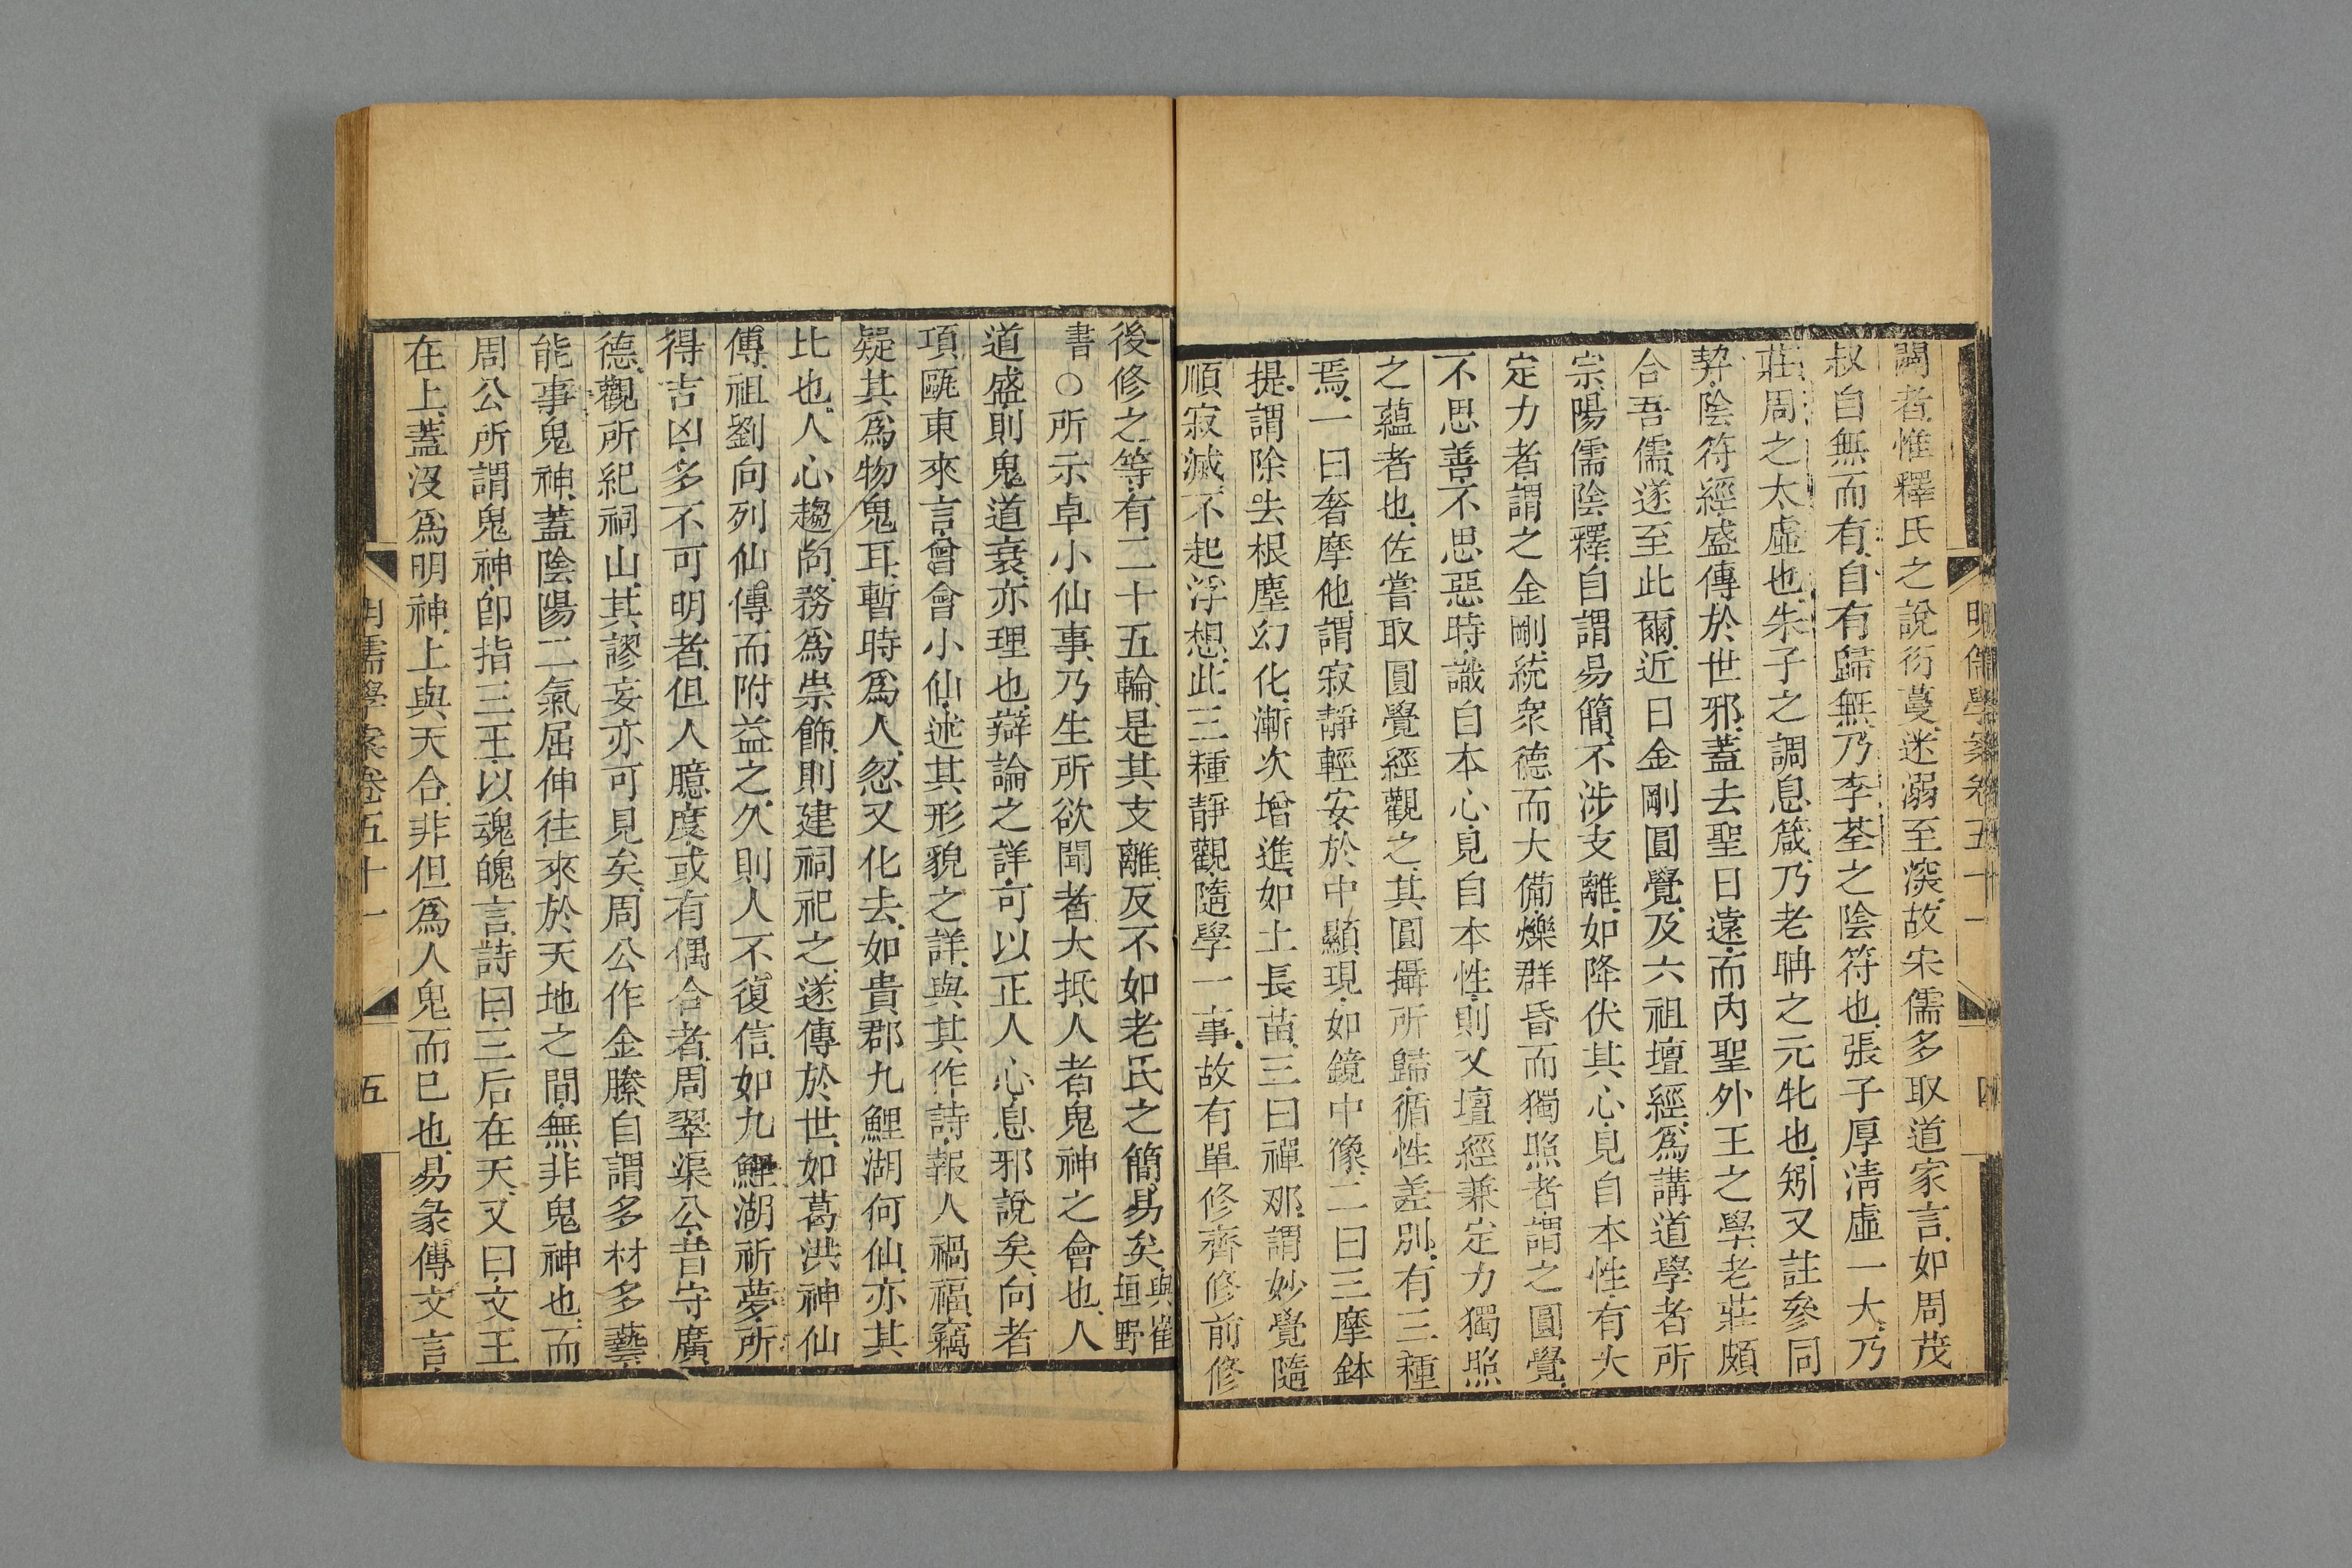 明儒學案卷五十一
四
闢者惟釋氏之說衍蔓迷溺至深故宋儒多取道家言如周茂
叔自無而有自有歸無乃李荃之陰符也張子厚淸虛一大乃
莊周之太虛也朱子之調息箴乃老聃之元牝也矧又註參同
契陰符經盛傳於世邪蓋去聖日遠而內聖外王之學老莊頗
合吾儒遂至此爾近日金剛圓覺及六祖壇經爲講道學者所
宗陽儒陰釋自謂易簡不涉支離如降伏其心見自本性有大
定力者謂之金剛統衆德而大備爍群昏而獨照者謂之圓覺
不思善不思惡時識自本心見自本性則又壇經兼定力獨照
之蘊者也佐嘗取圓覺經觀之其圓攝所歸循性差別有三種
焉一曰奢摩他謂寂靜輕安於中顯現如鏡中像二曰三摩鉢
提謂除去根塵幻化漸次增進如土長苗三曰禪那謂妙覺隨
順寂滅不起浮想此三種靜觀隨學一事故有單修齊修前修
後修之等有二十五輪是其支離反不如老氏之簡易矣與崔
垣野
書○所示卓小仙事乃生所欲聞者大抵人者鬼神之會也人
道盛則鬼道衰亦理也辯論之詳可以正人心息邪說矣向者
項甌東來言曾會小仙述其形貌之詳與其作詩報人禍福竊
疑其爲物鬼耳暫時爲人忽又化去如貴郡九鯉湖何仙亦其
比也人心趨尙務爲崇飾則建祠祀之遂傳於世如葛洪神仙
傳祖劉向列仙傳而附益之久則人不復信如九鯉湖祈夢所
得吉凶多不可明者但人臆度或有偶合者周翠渠公昔守廣
德觀所紀祠山其謬妄亦可見矣周公作金縢自謂多材多藝
能事鬼神蓋陰陽二氣屈伸往來於天地之間無非鬼神也而
周公所謂鬼神卽指三王以魂魄言詩曰三后在天又曰文王
在上蓋沒爲明神上與天合非但爲人鬼而已也易彖傳文言
明儒學案卷五十一
五